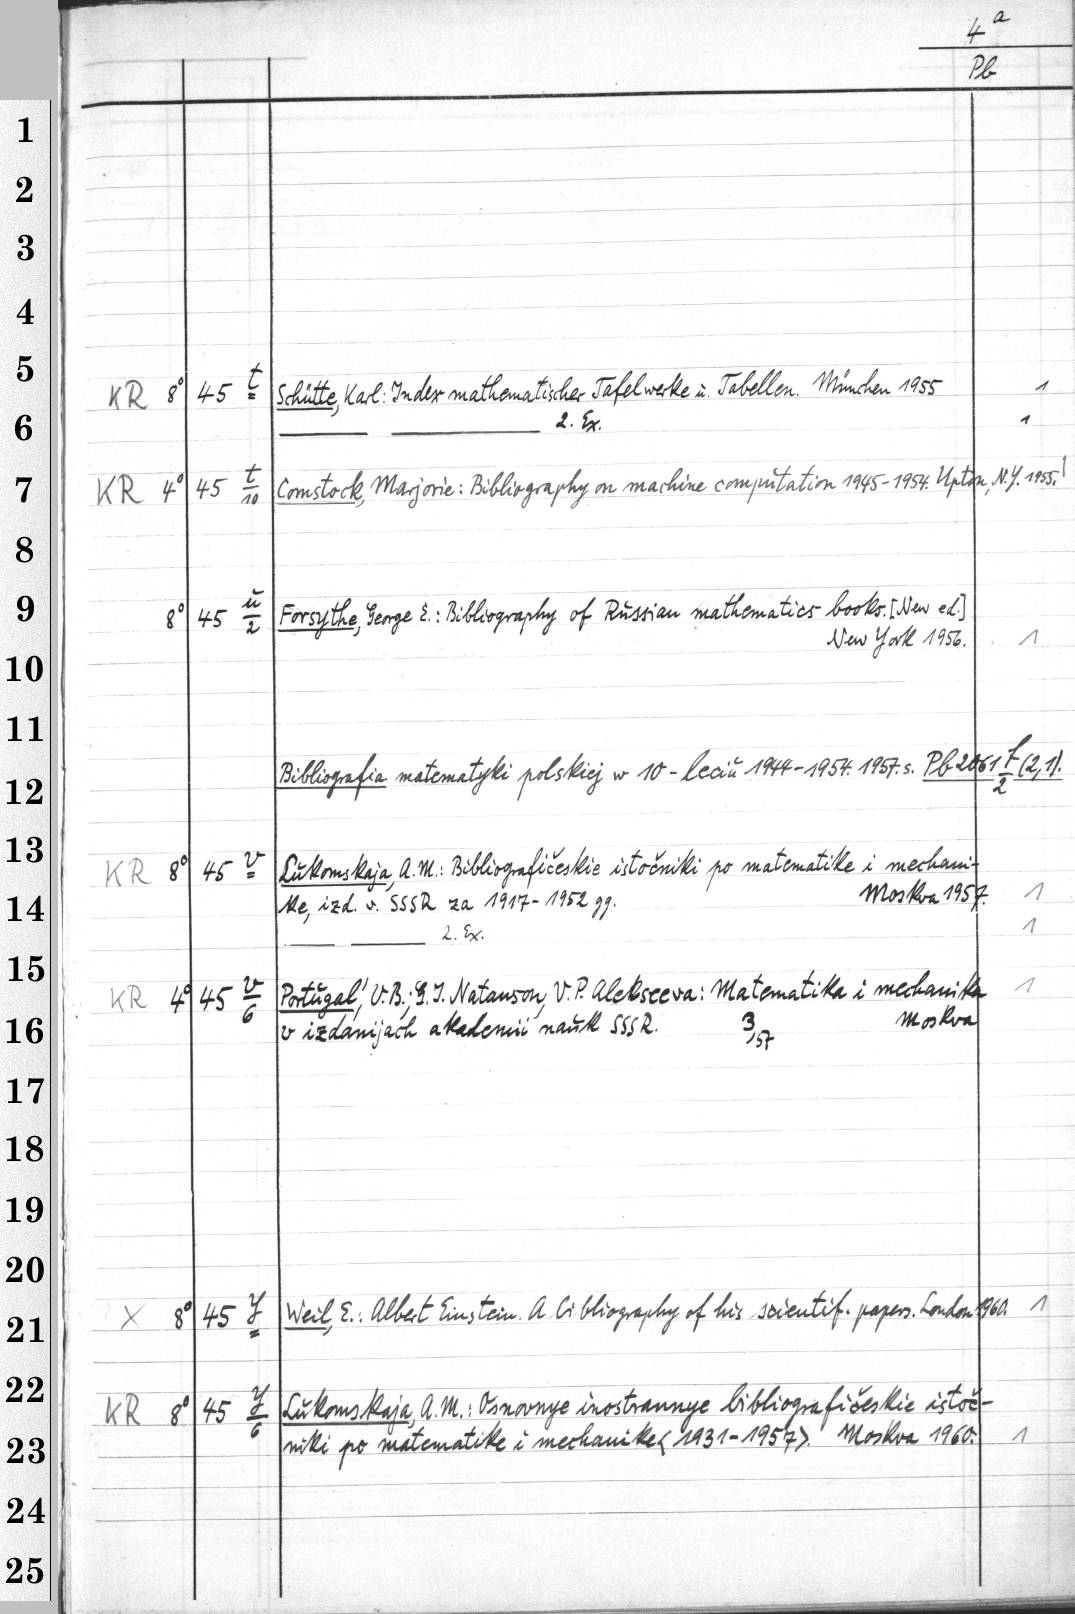 4a
Pb
1
2
3
4
5
KR 8° 45 t Schütte, Karl: Index mathematischer Tafelwerke u. Tabellen. München 1955 1
6
2. Ex. 1
7
KR 4° 45 t/10 Comstock, Marjorie: Bibliography on machine computation 1945-1954. Upton, N.Y. 1955. 1
8
9
8° 45 u/2 Forsythe, George E.: Bibliography of Russian mathematics books. [New ed.]
New York 1956. 1
10
11
12
Bibliografia matematyki polskiej w 10-leciu 1944-1954. 1957. s. Pb 2061 f/2 (2,1).
13
KR 8° 45 v Lukomskaja, A.M.: Bibliografičeskie istočniki po matematike i mechani-
14
ke, izd. v. SSSR za 1917-1952 gg. Moskva 1957. 1
2. Ex. 1
15
KR 4° 45 v/6 Portugal', V.B.; G.I. Natanson, V.P. Alekseeva: Matematika i mechanika 1
16
v izdanijach akademii nauk SSSR. 3,57 Moskva
17
18
19
20
21
X 8° 45 y Weil, E.: Albert Einstein. A bibliography of his scientif. papers. London 1960. 1
22
KR 8° 45 y/6 Lukomskaja, A.M.: Osnovnye inostrannye bibliografičeskie istoč-
23
niki po matematike i mechanike <1931-1957>. Moskva 1960. 1
24
25